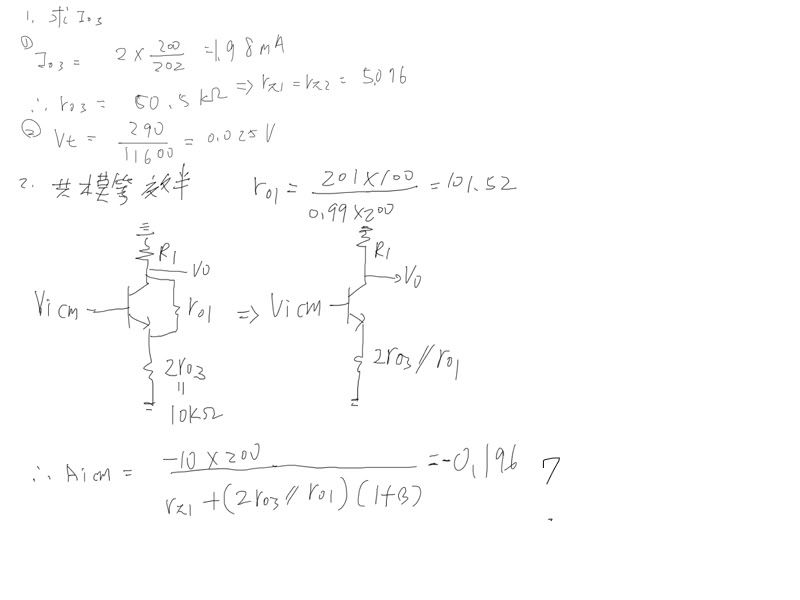 1. 求 Io3
① Io3 = 2 × 200/202 = 1.98 mA
∴ ro3 = 50.5 kΩ ⇒ rπ1 = rπ2 = 5.076
② Vt = 290/11600 = 0.025 V
2. 共模等效半 ro1 = 201×100/0.99×200 = 101.52
R1
Vo
Vicm
ro1
2ro3
=
10kΩ
⇒
R1
Vo
Vicm
2ro3 // ro1
∴ Aicm = -10 × 200/rπ1 + (2ro3 // ro1) (1+B) = -0.196 ?